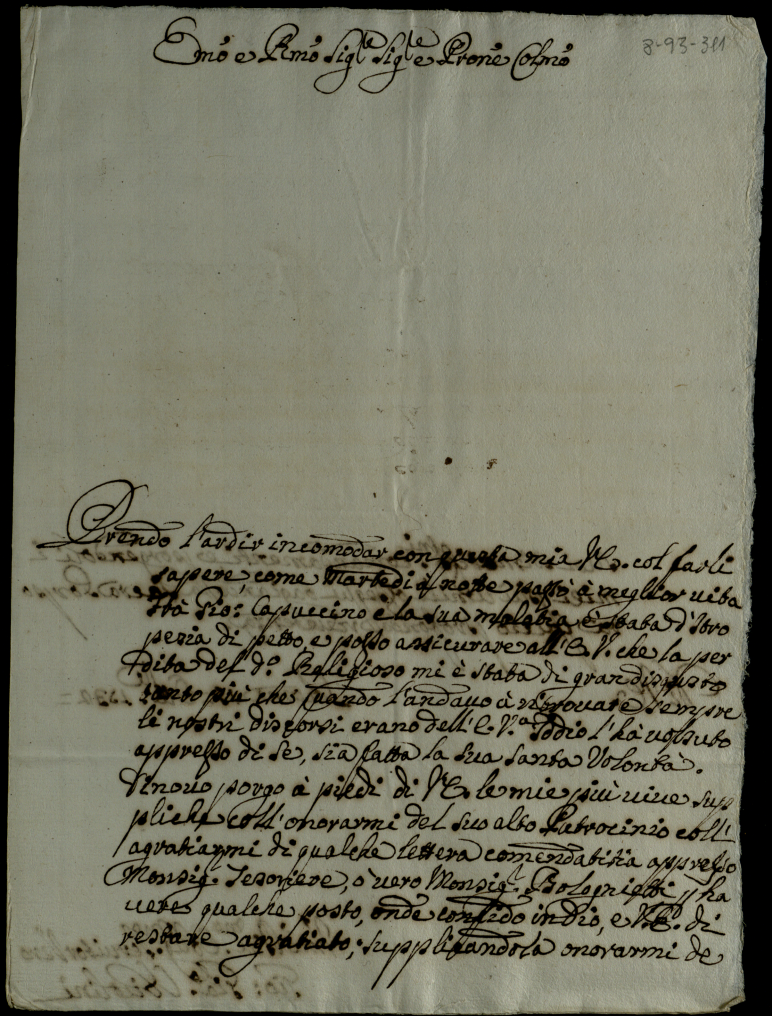 8-93-311
Emo e Rmo Sig.re Sig.re e Prone Colmo
Prendo l'ardir incomodar con questa mia V.E. col farli
sapere, come Martedì notte passò à meglior vita
frà Gio: Capuccino e la sua malatia è stata d'Itro
pesia di petto, e posso assicurare all'E.V. che la per
dita del d.o Religioso mi è stata di gran disgusto
tanto più che quando l'andavo à ritrovare sempre
li nostri discorsi erano dell'E.V.a Iddio l'hà voluto
appresso di se, sia fatta la sua santa Volontà.
Di novo porgo à piedi di V.E. le mie più vive sup
pliche coll'onorarmi del suo alto Patrocinio coll'
agratiarmi di qualche lettera comendatitia appresso
Monsig.r Tesoriere, ò vero Monsig.r Bolognietti p ha
vere qualche posto, onde confido in dio, e V.E. di
restare agratiato, supplicandola onorarmi de